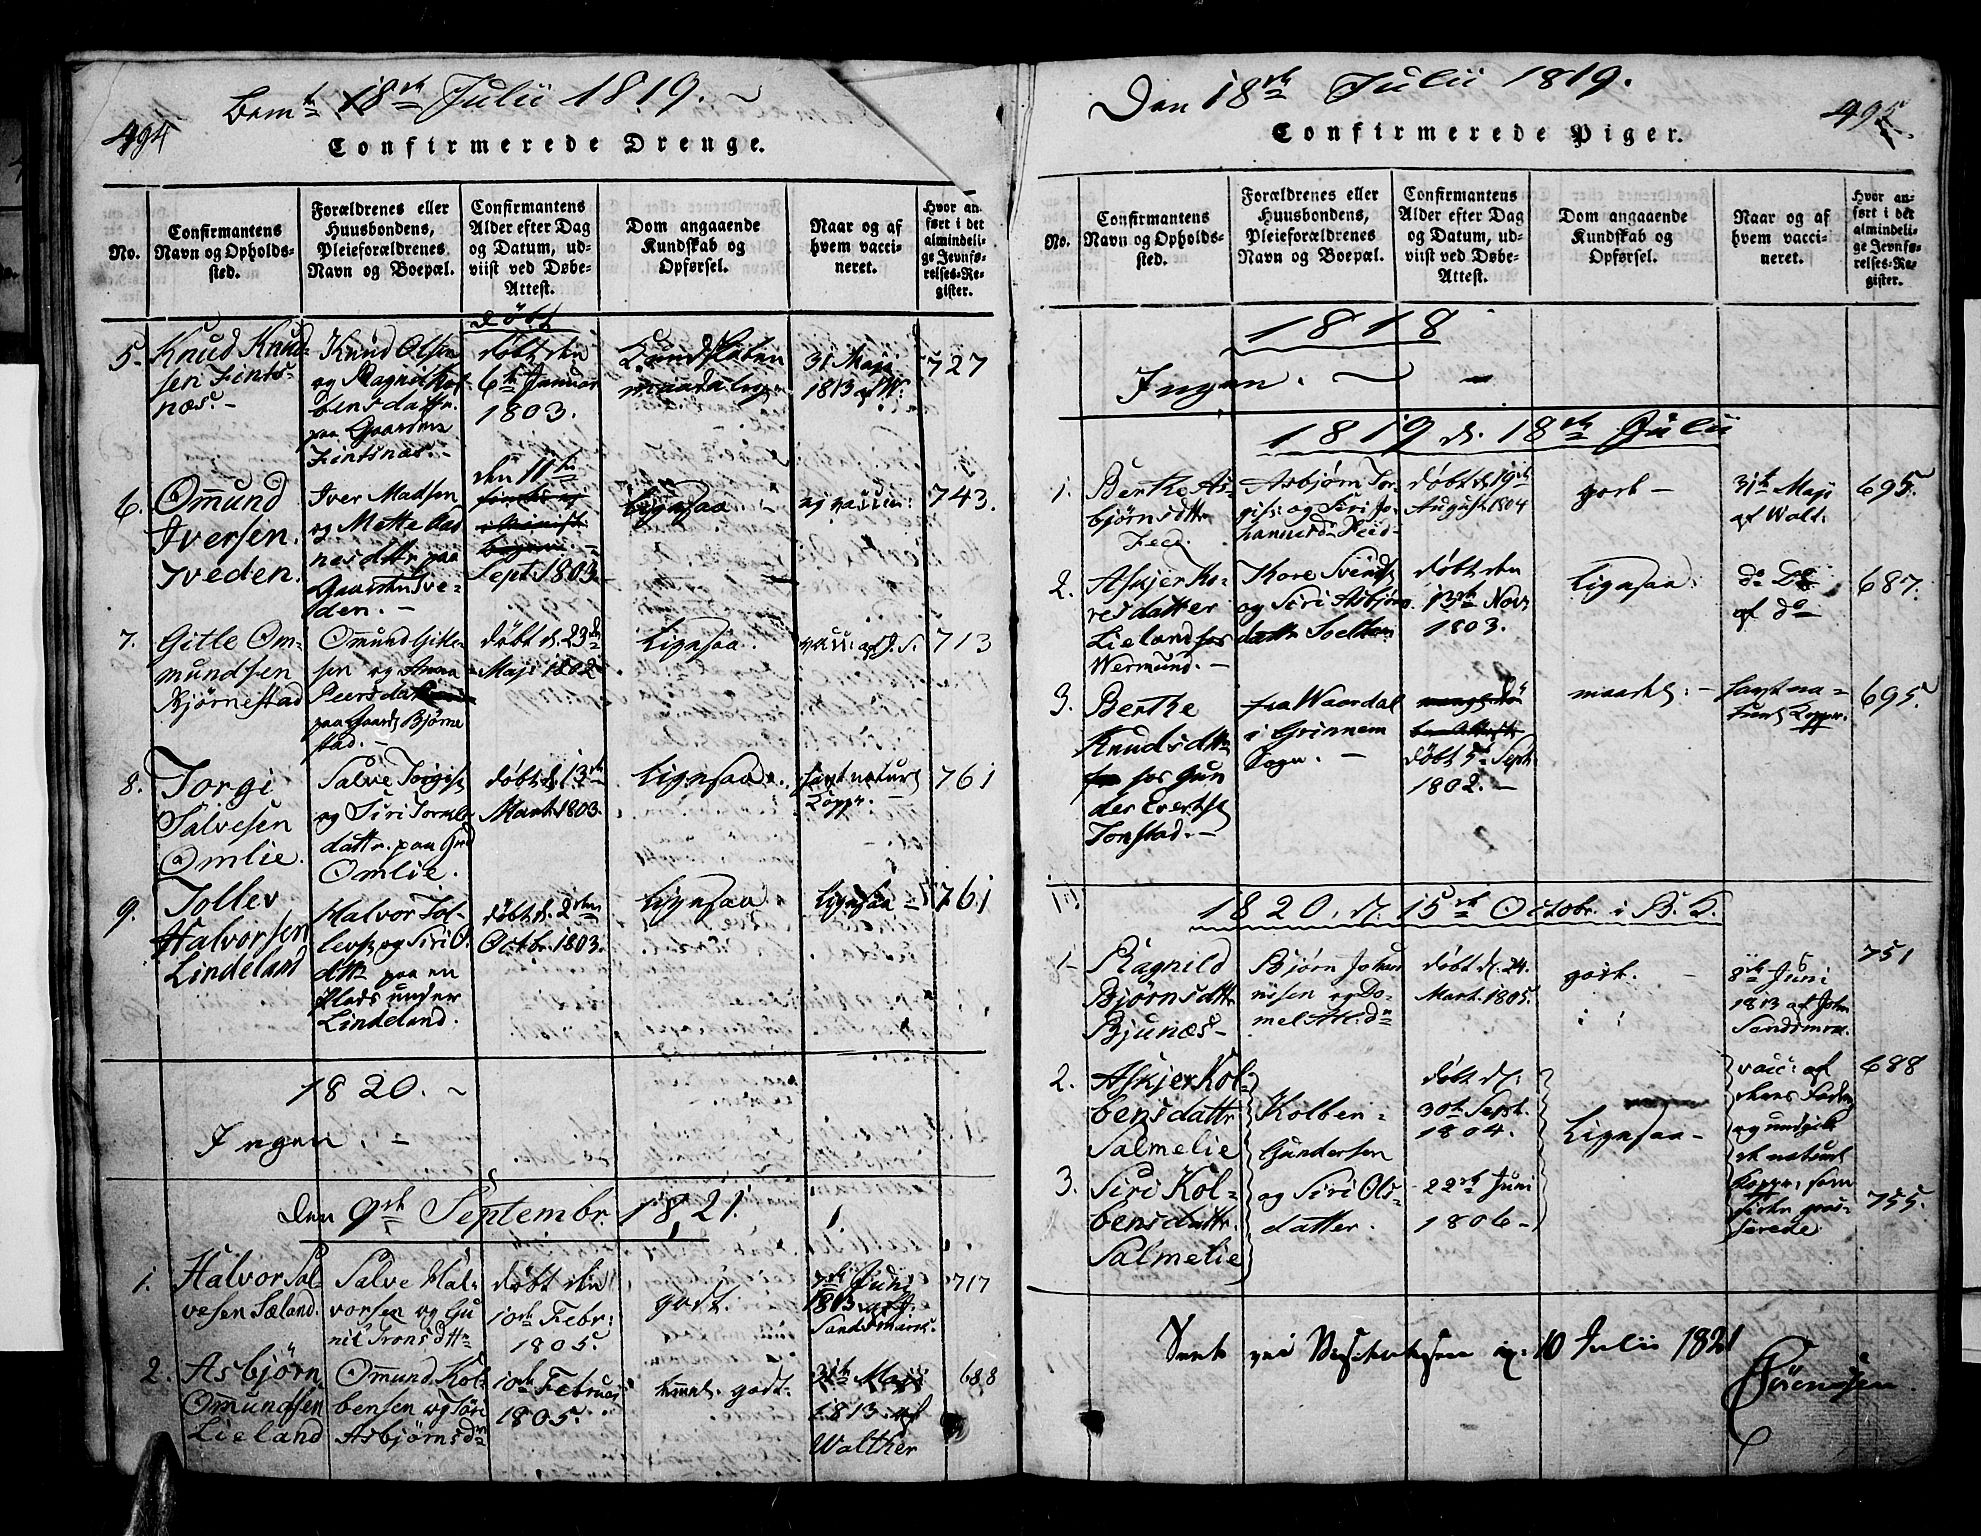 494
Bem.t 18de Julii 1819.
Confirmerede Drenge.
No.
Confirmantens
Navn og Opholds-
sted.
Forældrenes eller
Huusbondens,
Pleieforældrenes
Navn og Boepæl.
Confirmantens
Alder efter Dag
og Datum, ud-
viist ved Døbe-
Attest.
Dom angaaende
Kundskab og
Opførsel.
Naar og af
hvem vacci-
neret.
Hvor an-
ført i det
almindeli-
ge Jevnfø-
relses-Re-
gister.
døbt
5.
Knud Knud-
sen Fints-
næs.
Knud Olsen
og Ragnil Kol-
bensdattr.
paa Gaarden
Fintsnæs.
døbt den
6te Januar
1803.
Kundskaben
maadelig
31 Maji
1813 af W.
727
6.
Omund
Iversen
Iveden.
Iver Madsen
og Mette
dttr. paa
Gaarden Ive-
den.
den 11te
Sept. 1803.
Ligesaa
ey vaccin:
743.
7.
Gitle Om-
mundsen
Bjørnestad
Omund Gitle-
sen og
Peersdatt
paa Gaard Bjørne
stad.
døbt d. 23de
Maji 1802
Ligesaa.
vacc: af J. S.
713
8.
Torgi
Salvesen
Omlie.
Salve Torgis
og Siri
dattr. paa Grd
Omlie.
døbt d. 13de
Mart. 1803.
Ligesaa.
havt naturl
Kopper.
761
9.
Tollev
Halvorsen
Lindeland
Halvor Tol-
levs: og Siri O.
dttr paa en
Plads under
Lindeland.
døbt d. 2den
Octbr. 1803.
Ligesaa
Ligesaa
761
1820.
Ingen.
den 9de Septembr. 1821.
1.
Halvor Sal-
vesen Sæland.
Salve Hal-
vorsen og Gu
nil Tronsdttr
døbt den
10de Febr:
1805.
godt.
7de Juni
1813 af J.
Sandsmark.
717
2.
Asbjørn
Omundsen
Lieland
Omund Kol-
bensen og Siri
Asbjørnsdr
10de Februar
1805.
godt.
31te Maji
1813 af
Walther
688
Den 18de Julii 1819.
495.
Confirmerede Piger.
No.
Confirmantens
Navn og Opholds-
sted.
Forældrenes eller
Huusbondens,
Pleieforældrenes
Navn og Boepæl.
Confirmantens
Alder efter Dag
og Datum, ud-
viist ved Døbe-
Attest.
Dom angaaende
Kundskab og
Opførsel.
Naar og af
hvem vacci-
neret.
Hvor an-
ført i det
almindeli-
ge Jevnfø-
relses-Re-
gister.
1818
Ingen.
1819 d. 18de Julii
1.
Berthe As-
bjørnsdttr
Fece.
Asbjørn Tor-
gis: og Siri Jo-
døbt d. 19de
August 1804
godt
31te Maji
af Walt:
695.
2.
Askjer Ko-
resdatter
Lieland hos
Wermund.
Kore Svends
og Siri Asbjørns
dattr
døbt den
13de Novr
1803.
Ligesaa.
do Do
af do
687.
3.
Berthe
Knudsdttr
hos Gun
der Evertsen
Tonstad.
fra Waardal
i Grinnem
Sogn.
døbt 5. Sept.
1802.
maadel:
havt na-
turl Kopper.
695.
1820. d. 15de Octobr. i B. K.
1.
Ragnild
Bjørnsdttr
Bjunæs
Bjørn Johan
nisen og Do-
mel Atl. dr
døbt d. 24.
Mart. 1805.
godt.
8de Juni
1813 af John
Sandsmrk.
751
2.
Askjer Kol-
bensdattr
Salmelie
Kolben
Gundersen
og Siri Ols-
datter.
døbt d.
30te Septr.
1804.
Ligesaa
vacc: af
hans Fader
og undgik
de naturl.
Kopper, som
siden gras-
serede
688
3.
Siri Kol-
bensdattr.
Salmelie
22de Juni
1806
755.
10 Julii 1821
Sörenssen